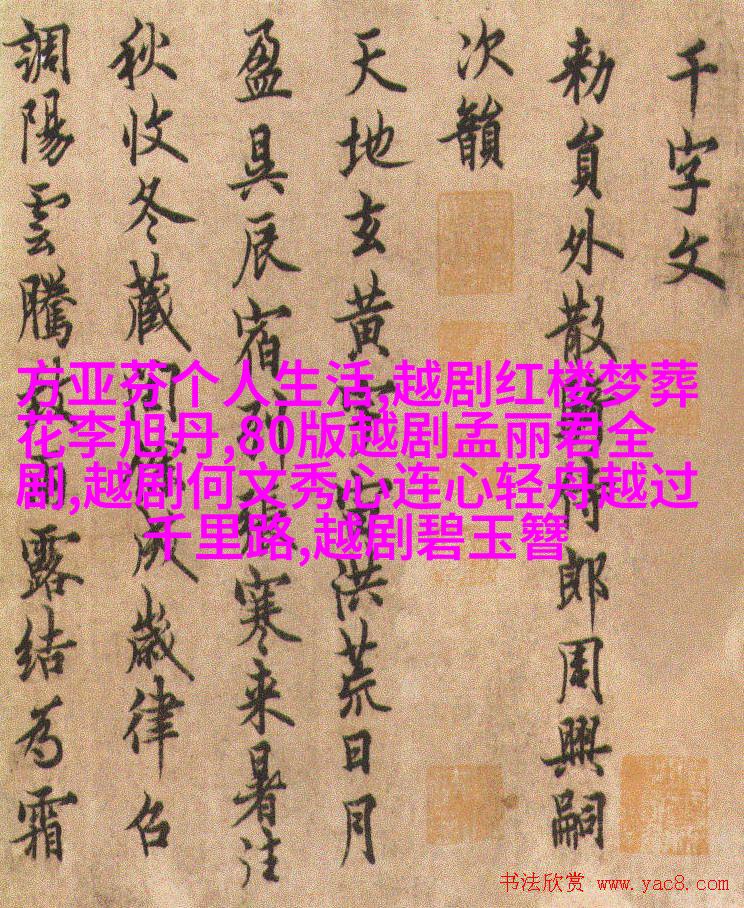 千字文
勑員外散侍郎周興嗣
次韻
天地玄黃宙洪荒日月
盈昃辰宿列張寒来暑往
秋收冬藏閏成歲律召
調陽雲騰致露結為霜
方亚芬个人生活,越剧红楼梦葬
花李旭丹,80版越剧孟丽君全
剧,越剧何文秀心连心轻舟越过
千里路,越剧碧玉簪
书法欣赏 www.yac8.com